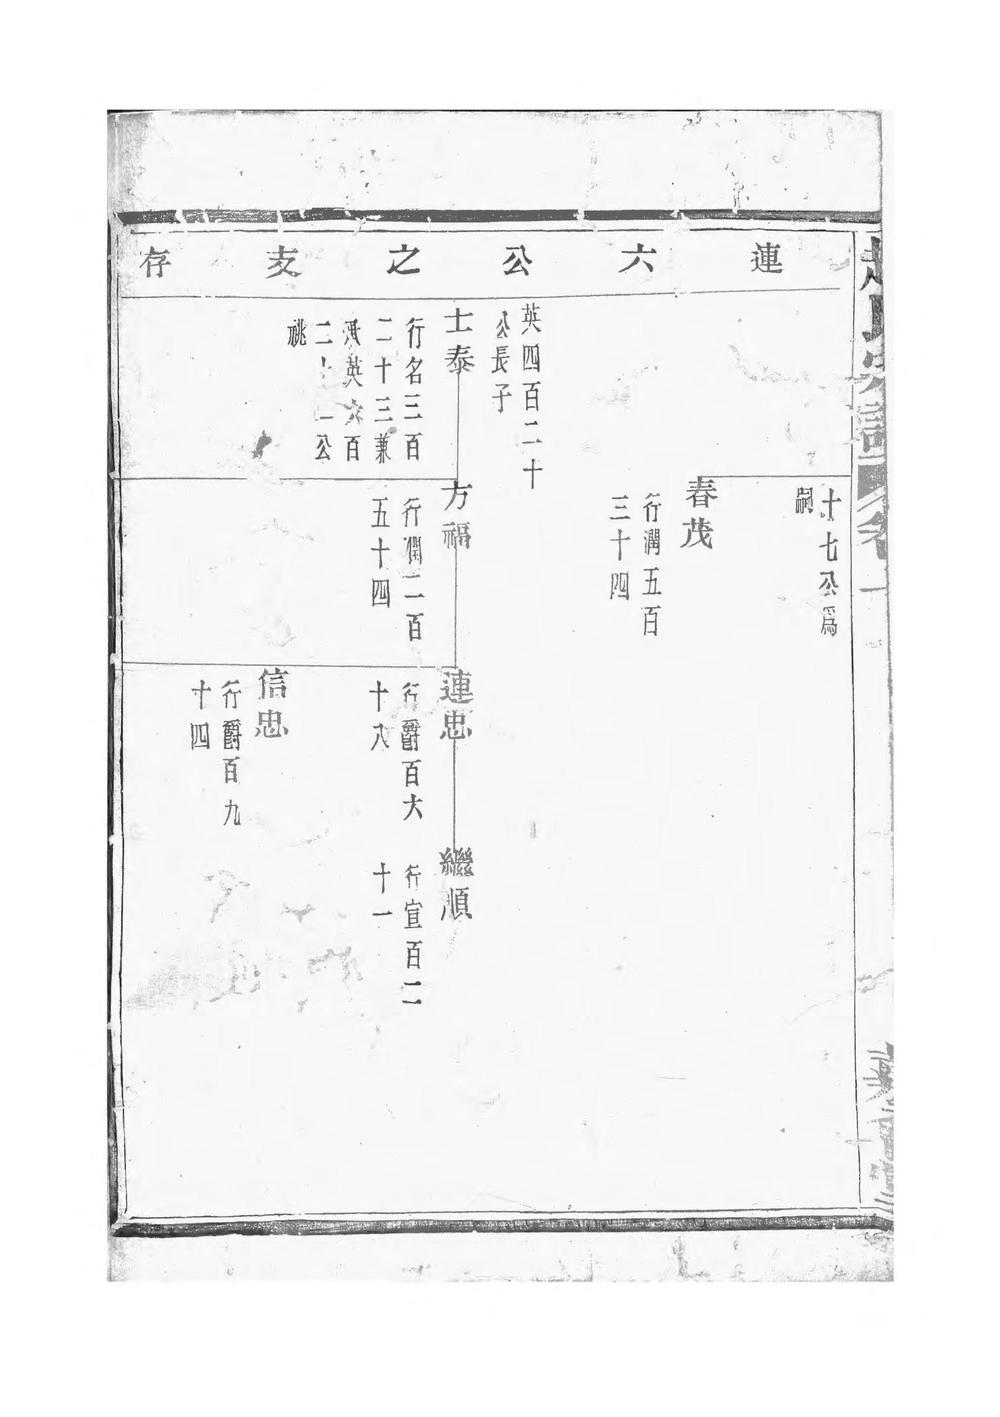 連六公之支存
十七公爲
嗣
春茂
行潤五百
三十四
英四百二十
公長子
士泰
行名三百
二十三兼
承英六百
二十一公
祧
方福
行潤二百
五十四
連忠
行爵百六
十八
繼順
行宣百二
十一
信忠
行爵百九
十四